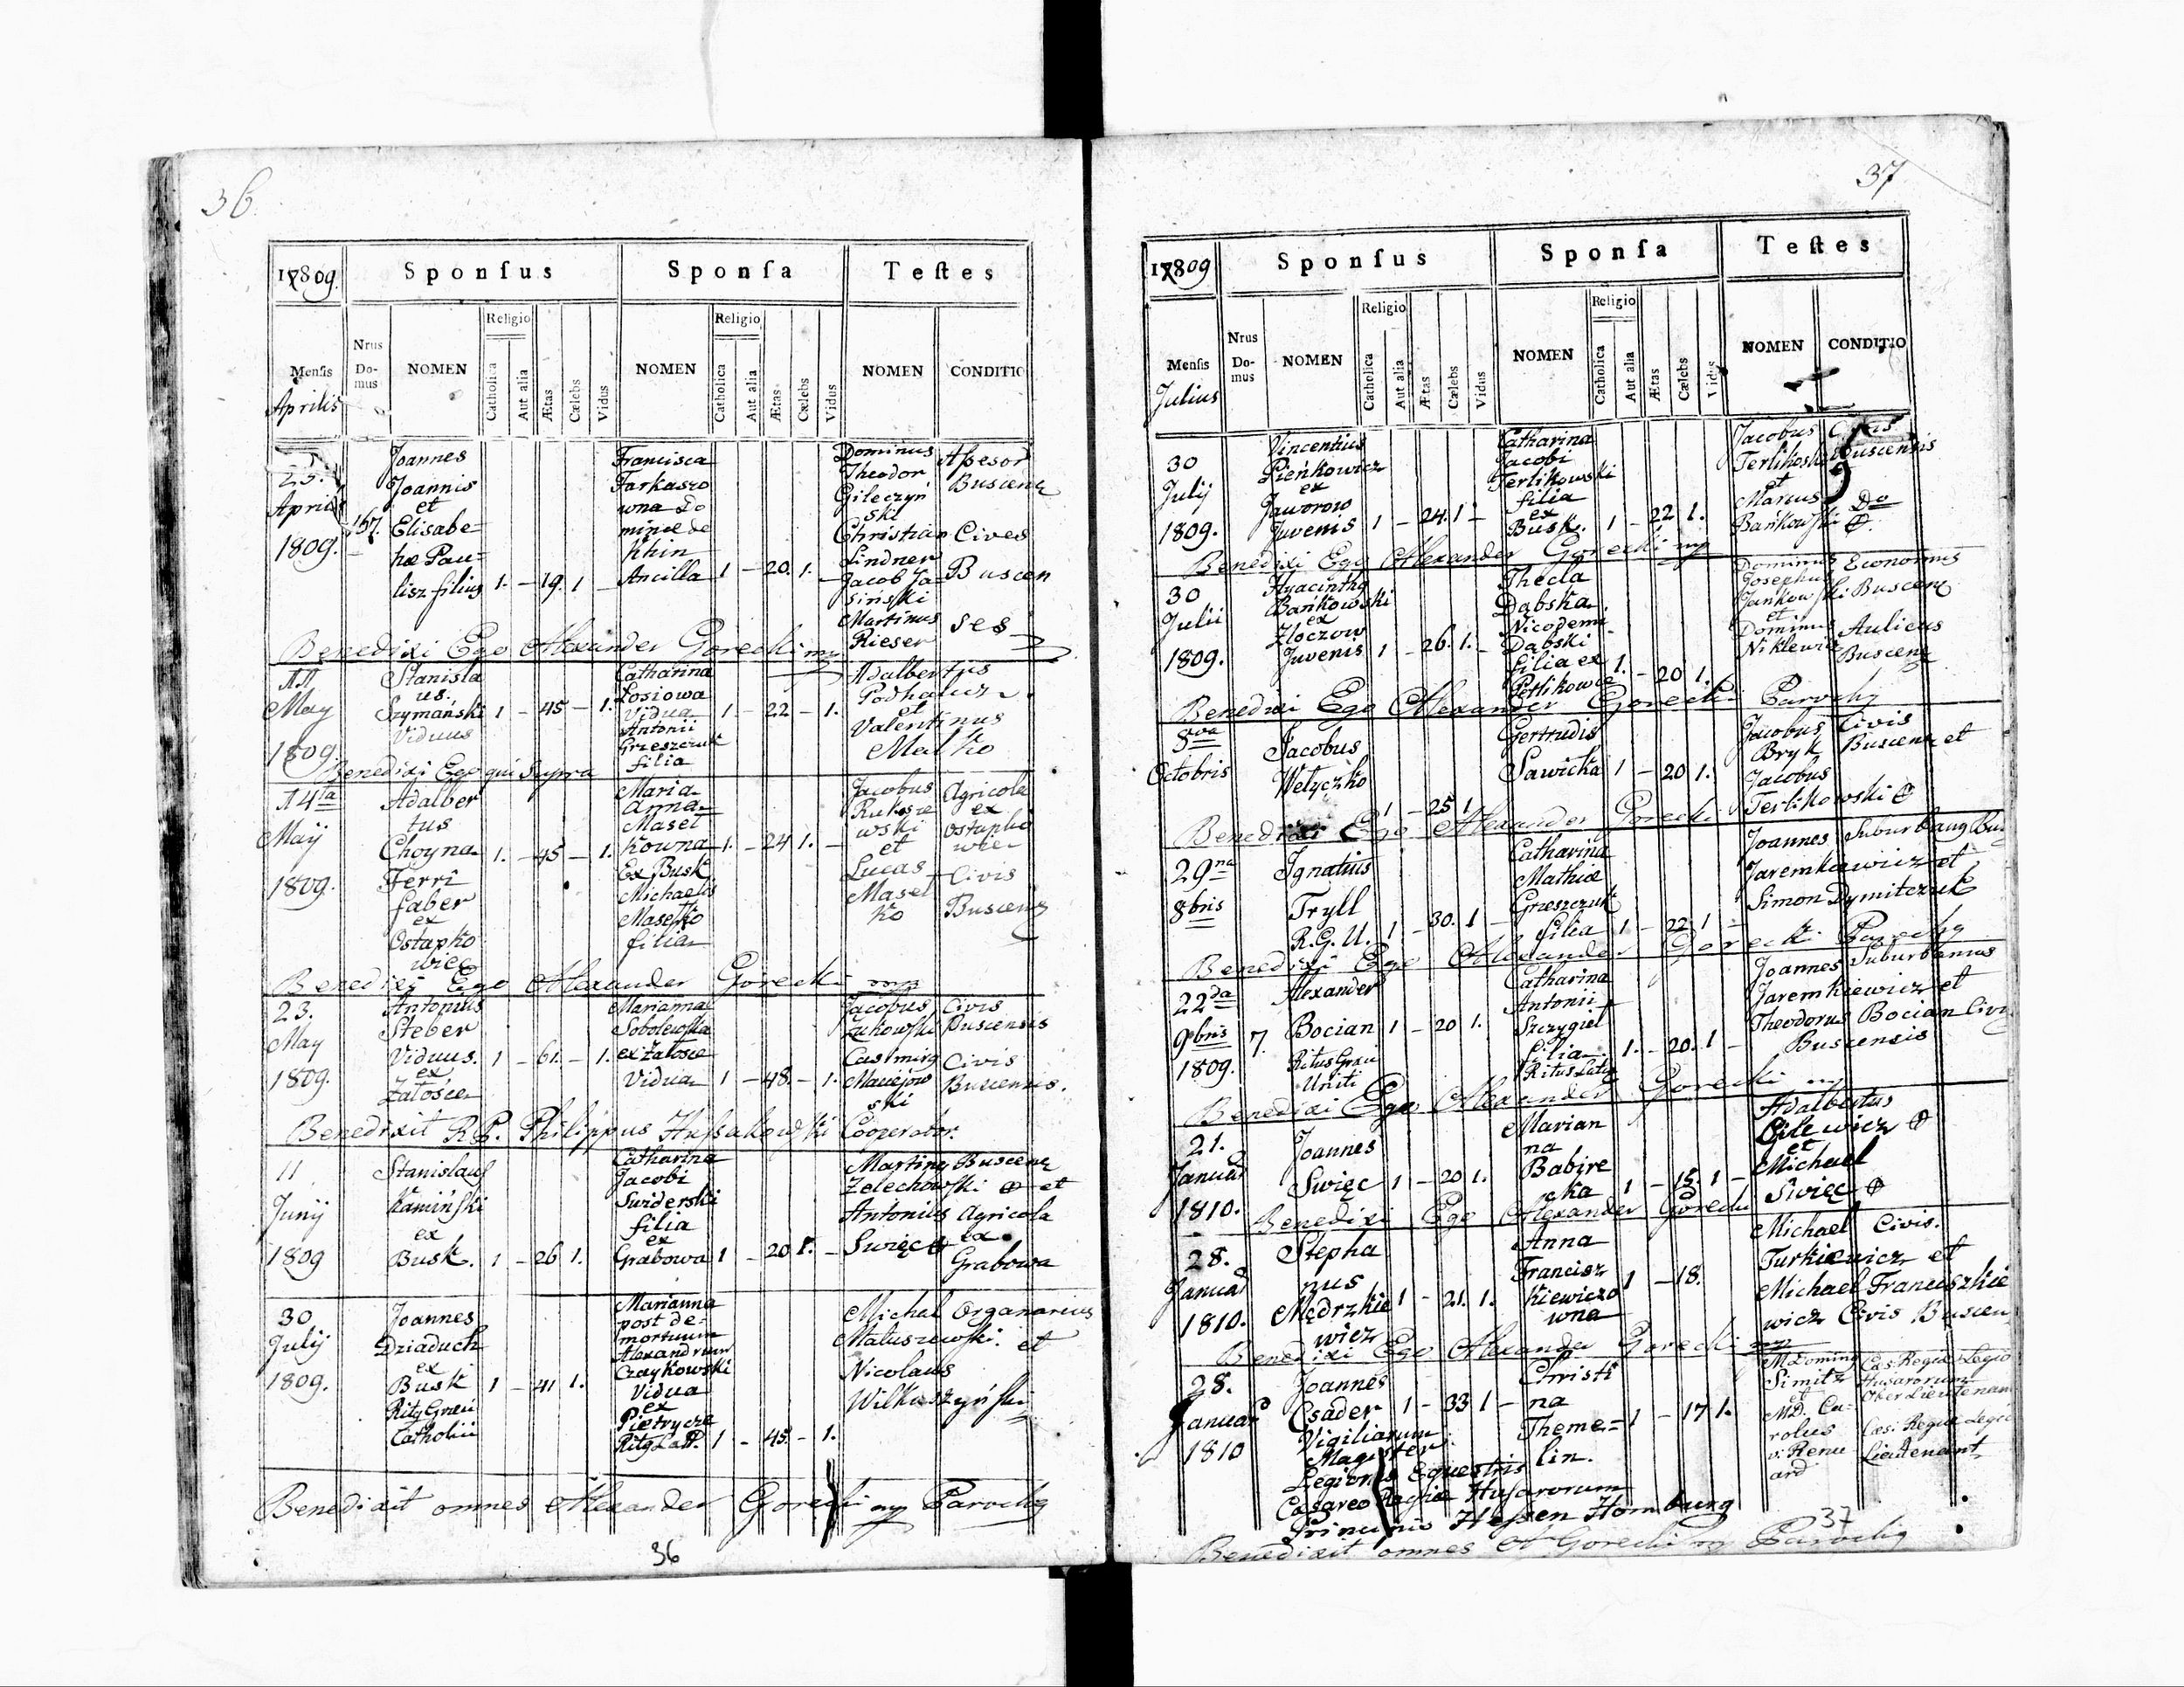 36
17809.
Sponſus
Sponſa
Teſtes
Menſis
Nrus Do-mus
NOMEN
Religio
Catholica
Aut alia
Ætas
Cælebs
Vidus
NOMEN
Religio
Catholica
Aut alia
Ætas
Cælebs
Vidus
NOMEN
CONDITIO
Aprilis
25.
Aprilis
1809.
167.
Joannes
Joannis
et
Elisabe=
hæ Pau=
lisz filius 1. – 19. 1 –
Francisca
Farkaszo
wna Do
minæ de
Khin
Ancilla 1 – 20. 1. –
Dominus
Theodor
Gileczyń
ski
Christian
Lindner
Jacob Ja=
siński
Martinus
Rieser
Assesor
Buscens
Cives
Buscen
ses
Benedixi Ego Alexander Gorecki mp
11
May
1809.
Stanisla
us.
Szymański 1 – 45 – 1.
Viduus
Catharina
Łosiowa
Vidua 1 – 22 – 1.
Antonii
Grzeszczuk
filia
Adalbertus
Podhalicz
et
Valentinus
Malko
Benedixi Ego qui Supra
14ta
Maij
1809.
Adalber
tus
Choyna 1. – 45 – 1.
Ferri
faber
ex
Ostapko
wiec
Maria
Anna
Masel
kowna 1. – 24 1. –
Ex Busk
Michaelis
Masełko
filia
Jacobus
Ruksze
wski
et
Lucas
Masel
ko
Agricola
ex
Ostapko
wiec
Civis
Buscens
Benedixi Ego Alexander Gorecki mp
23.
May
1809.
Antonius
Steber
Viduus. 1 – 61. – 1.
ex
Załośce
Marianna
Sobolewska
ex Załośce
Vidua 1 – 48. – 1.
Jacobus
Zukowski
Casimirg
Maciejow
ski
Civis
Buscensis
Civis
Buscensis.
Benedixit R.P. Philippus Hussakowski Cooperator.
11
Junij
1809
Stanislaus
Kamiński
ex
Busk. 1 – 26 1.
Catharina
Jacobi
Swiderski
filia
ex
Grabowa 1 – 20 1. –
Marting Buscens
Zelechowski et
Antonius Agricola
Swięc ex
Grabowa
30
July
1809.
Joannes
Dziaduch
ex
Busk 1 – 41 1.
Ritg Græci
Catholici
Marianna
post de=
mortuum
Alexandrum
Czaykowski
Vidua
ex
Pietrycze
Ritg Latt. 1 – 45. – 1.
Michal Organarius
Matuszewski. et
Nicolaus
Wilkoszyński
Benedixit omnes Alexander Gorecki mp Parochg
36
37
17809
Sponſus
Sponſa
Teſtes
Menſis
Nrus Do-mus
NOMEN
Religio
Catholica
Aut alia
Ætas
Cælebs
Vidus
NOMEN
Religio
Catholica
Aut alia
Ætas
Cælebs
Vidus
NOMEN
CONDITIO
Julius
30
Julij
1809.
Vincentius
Pieńkowicz
ex
Jaworow
Juvenis 1 – 24. 1 –
Catharina
Jacobi
Terlikowski
filia
ex
Busk. 1 – 22 1.
Jacobus
Terlikoski
et
Marcus
Bańkowski
Buscensis
Do
Benedixi Ego Alexander Gorecki mp
30
Julii
1809.
Hyacinthg
Bańkowski
ex
Złoczow
Juvenis 1 – 26. 1. –
Thecla
Dąbska
Nicodemi
Dąbski
filia ex 1. – 20 1.
Dominus
Josephus
Jankowski
et
Dominus
Niklewicz
Economus
Buscens
Aulicus
Buscens
Benedixi Ego Alexander Gorecki Parochg
8va
Octobris
Jacobus
Wełyczko
1 – 25 1
Gertrudis
Sawicka 1 – 20 1.
Jacobus Civis
Bryk Buscens et
Jacobus
Terlikowski
Benedixi Ego Alexander Gorecki
29na
8bris
Ignatius
Tryll
R.G.U. 1 – 30. 1 –
Catharina
Mathiæ
Grzeszczuk
filia 1 – 22 1 –
Joannes Suburbang Bus
Jaremkiewicz et
Simon Dymitczuk
Benedixi Ego Alexander Gorecki Parochg
22da
9bris
1809.
7.
Alexander
Bocian 1 – 20 1.
Ritus Græci
Uniti
Catharina
Antonii
Szczygieł
filia 1. – 20. 1 –
Ritus Latg
Joannes Suburbanus
Jaremkiewicz et
Theodorus Bocian Civis
Buscensis
Benedixi Ego Alexander Gorecki mp
21.
Januar
1810.
Joannes
Swięc 1 – 20 1.
Marian
na
Babire
cka 1 – 15. 1 –
Adalbertus
Gilewicz
et
Michael
Swięc
Benedixi Ego Alexander Gorecki
28.
Januar
1810.
Stepha
nus
Mędrzkie 1 – 21. 1.
wicz
Anna
Francisz
kiewiczo
wna 1 – 18.
Michael Civis.
Turkiewicz et
Michael Franciszkie
wicz Civis Buscen
Benedixi Ego Alexander Gorecki mp
28.
Januar
1810
Joannes
Csader 1 – 33 1 –
Vigiliarum
Magister
Legionis Equestris
Cæsareo Regiæ Husarorum
Principis Hessen Homburg
Christi
na
Theme= 1 – 17 1.
lin.
M.Doming
Simitz
et
MD. Ca=
rolus
v: Renu
ard
Cæs: Regiæ Legio
Husarorum
Ober Lieutenan
Cæs: Regiæ Legio
Lieutenant
37
Benedixit omnes A Gorecki mp Parochg